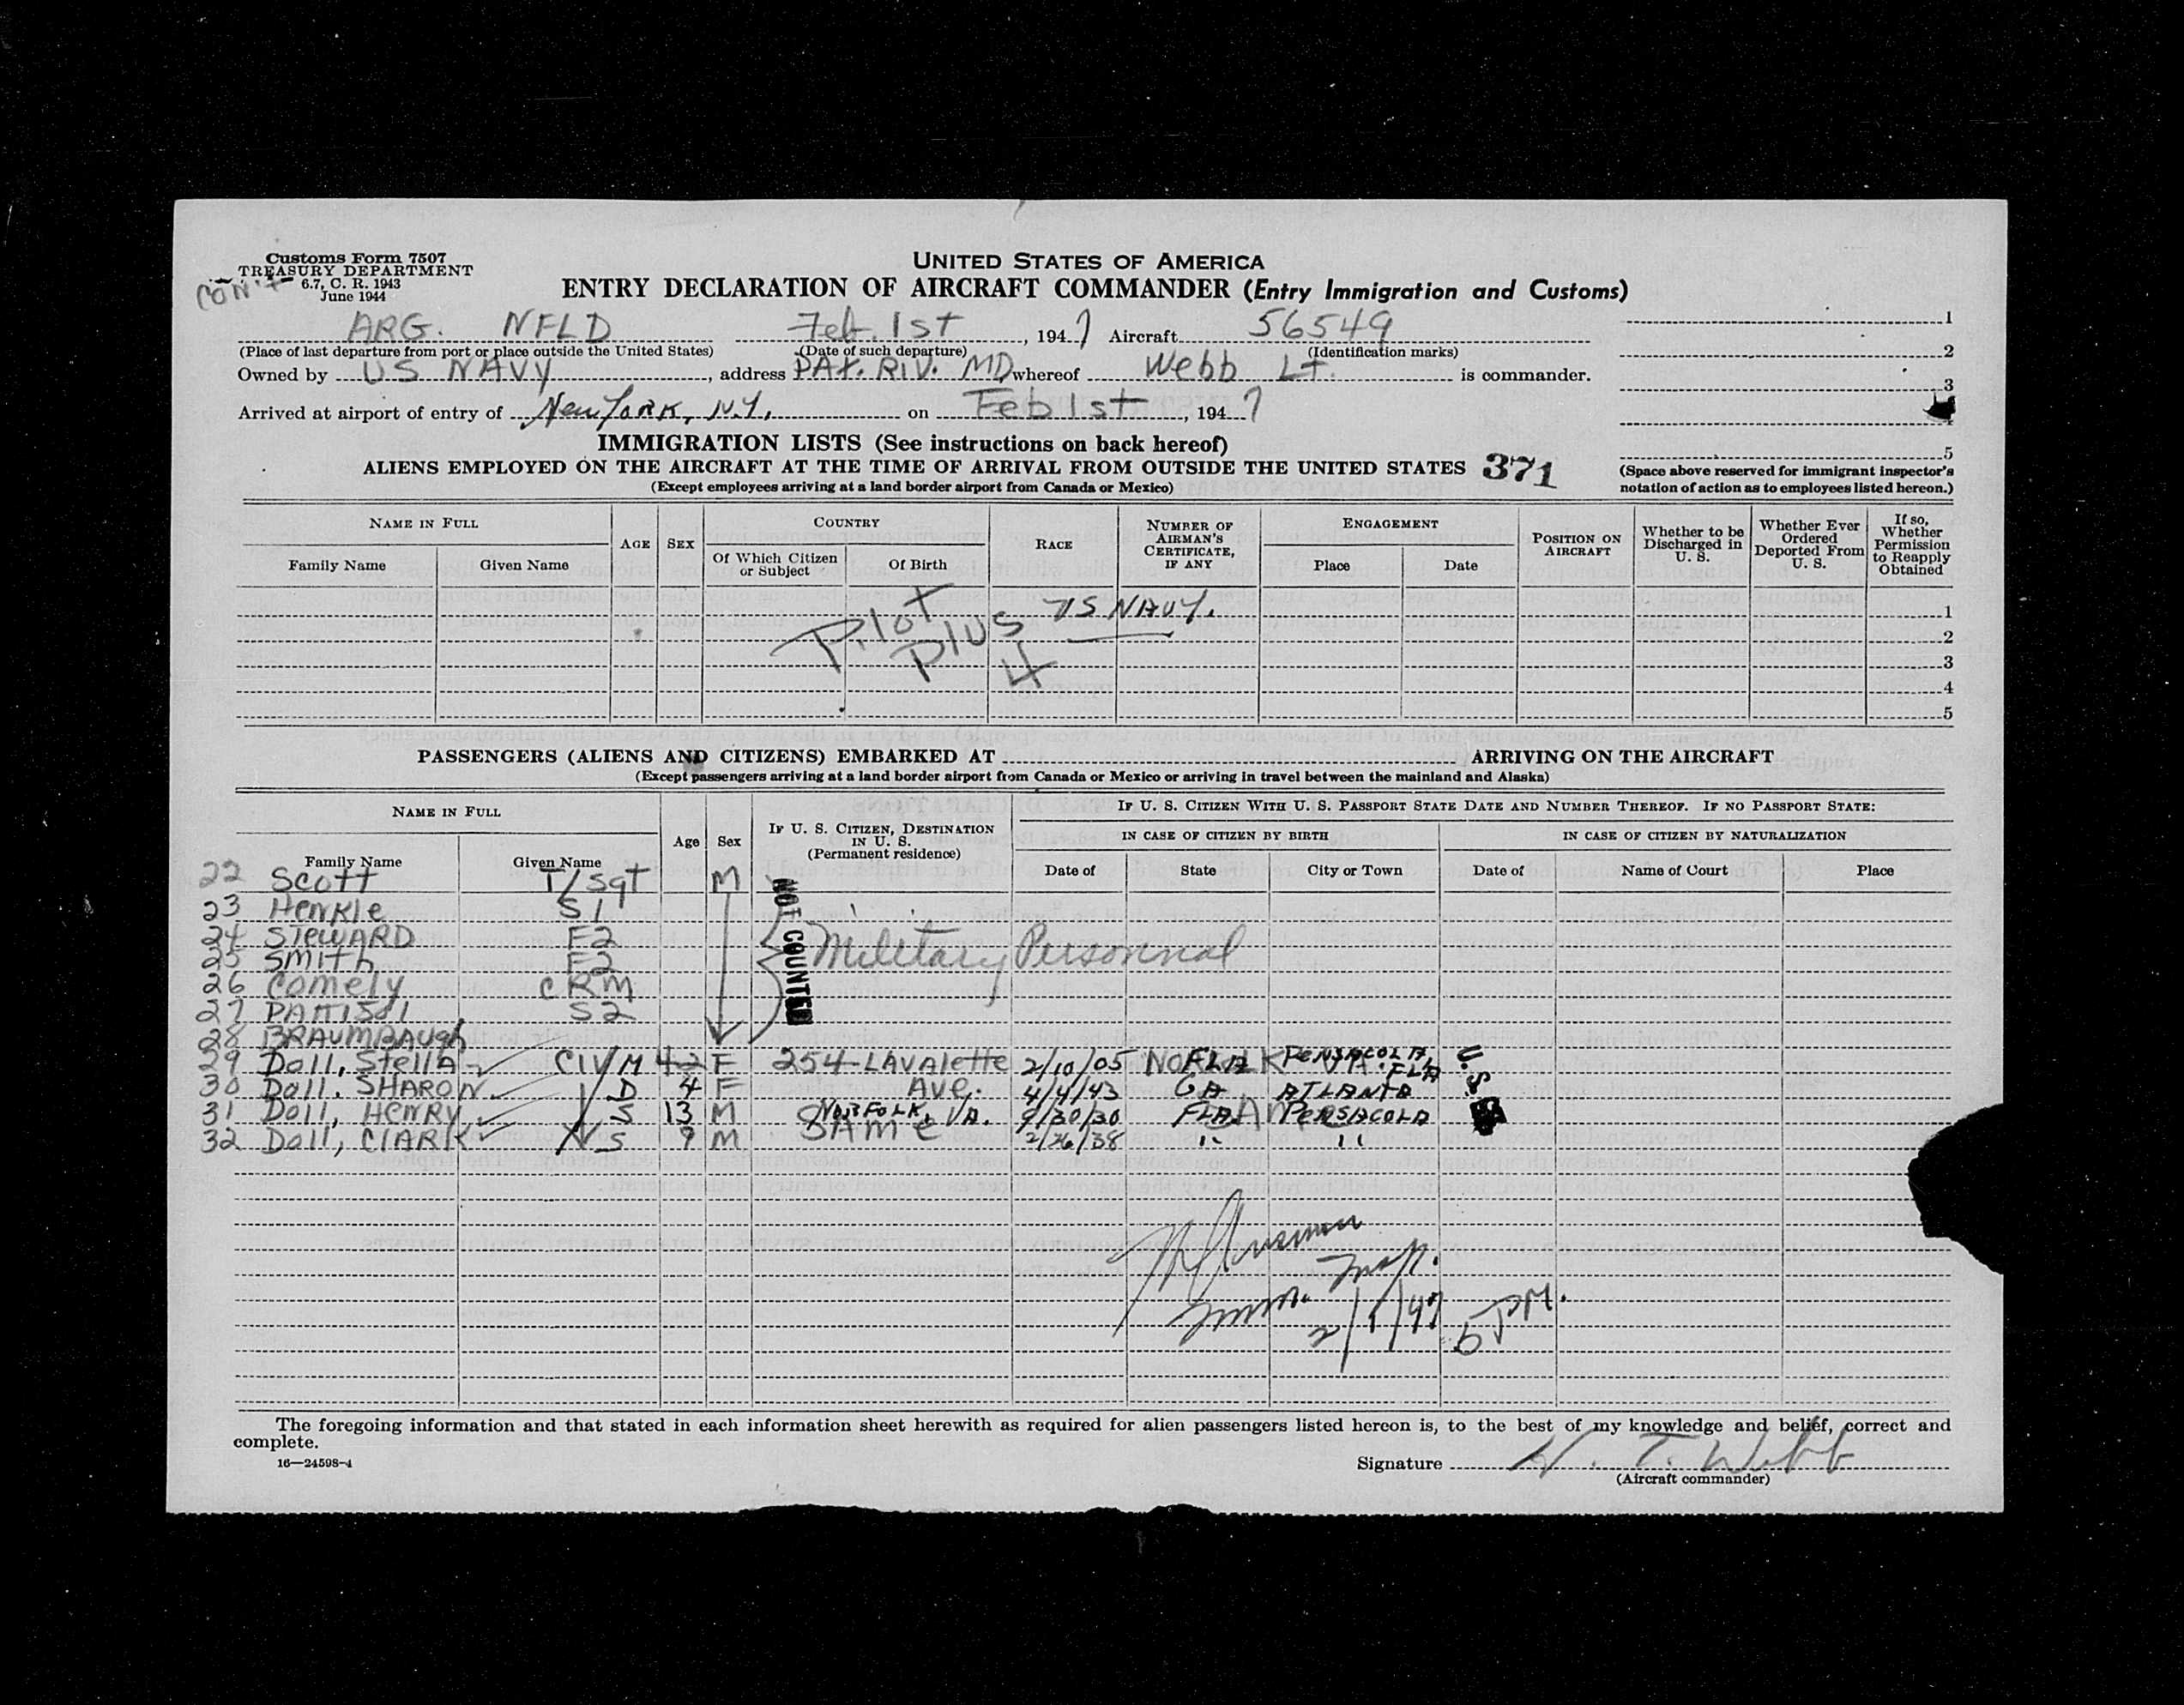 Customs Form 7507
TREASURY DEPARTMENT
6.7, C. R. 1943
June 1944
CON'T
UNITED STATES OF AMERICA
ENTRY DECLARATION OF AIRCRAFT COMMANDER (Entry Immigration and Customs)
ARG. NFLD Feb. 1st, 1947 Aircraft 56549
(Place of last departure from port or place outside the United States) (Date of such departure) (Identification marks)
Owned by US NAVY, address PAX. RIV. MD, whereof Webb Lt. is commander.
Arrived at airport of entry of New York, N.Y. on Feb 1st, 1947
1
2
3
5
(Space above reserved for immigrant inspector's notation of action as to employees listed hereon.)
IMMIGRATION LISTS (See instructions on back hereof)
ALIENS EMPLOYED ON THE AIRCRAFT AT THE TIME OF ARRIVAL FROM OUTSIDE THE UNITED STATES 371
(Except employees arriving at a land border airport from Canada or Mexico)
NAME IN FULL
Family Name Given Name
AGE SEX
COUNTRY
Of Which Citizen or Subject Of Birth
RACE
NUMBER OF AIRMAN'S CERTIFICATE, IF ANY
ENGAGEMENT
Place Date
POSITION ON AIRCRAFT
Whether to be Discharged in U. S.
Whether Ever Ordered Deported From U. S.
If so, Whether Permission to Reapply Obtained
Pilot Plus 4 US NAVY.
1
2
3
4
5
PASSENGERS (ALIENS AND CITIZENS) EMBARKED AT ARRIVING ON THE AIRCRAFT
(Except passengers arriving at a land border airport from Canada or Mexico or arriving in travel between the mainland and Alaska)
NAME IN FULL
Family Name Given Name
Age Sex
IF U. S. CITIZEN, DESTINATION IN U. S. (Permanent residence)
IF U. S. CITIZEN WITH U. S. PASSPORT STATE DATE AND NUMBER THEREOF. IF NO PASSPORT STATE:
IN CASE OF CITIZEN BY BIRTH IN CASE OF CITIZEN BY NATURALIZATION
Date of State City or Town Date of Name of Court Place
22 Scott T/Sgt M
23 Henkle S1
24 STEWARD F2
25 Smith F2
26 Comely CRM
27 S2
28 BRAUMBAUGH
NOT COUNTED
Military Personnal
29 Doll, Stella CIV M 42 F 254 LAVALETTE 2/10/05 NORFOLK VA. FLA PENSACOLA, FLA U.S.
30 Doll. SHARON D 4 F AVE. 4/4/43 GA ATLANTA
31 Doll, HENRY S 13 M NORFOLK, VA. 9/30/30 FLA. PENSACOLA
32 Doll, CLARK S 9 M SAME 2/26/38 " "
Imm. Insp.
2/1/47 5 PM.
The foregoing information and that stated in each information sheet herewith as required for alien passengers listed hereon is, to the best of my knowledge and belief, correct and complete.
16—24598-1
Signature W. T. Webb
(Aircraft commander)